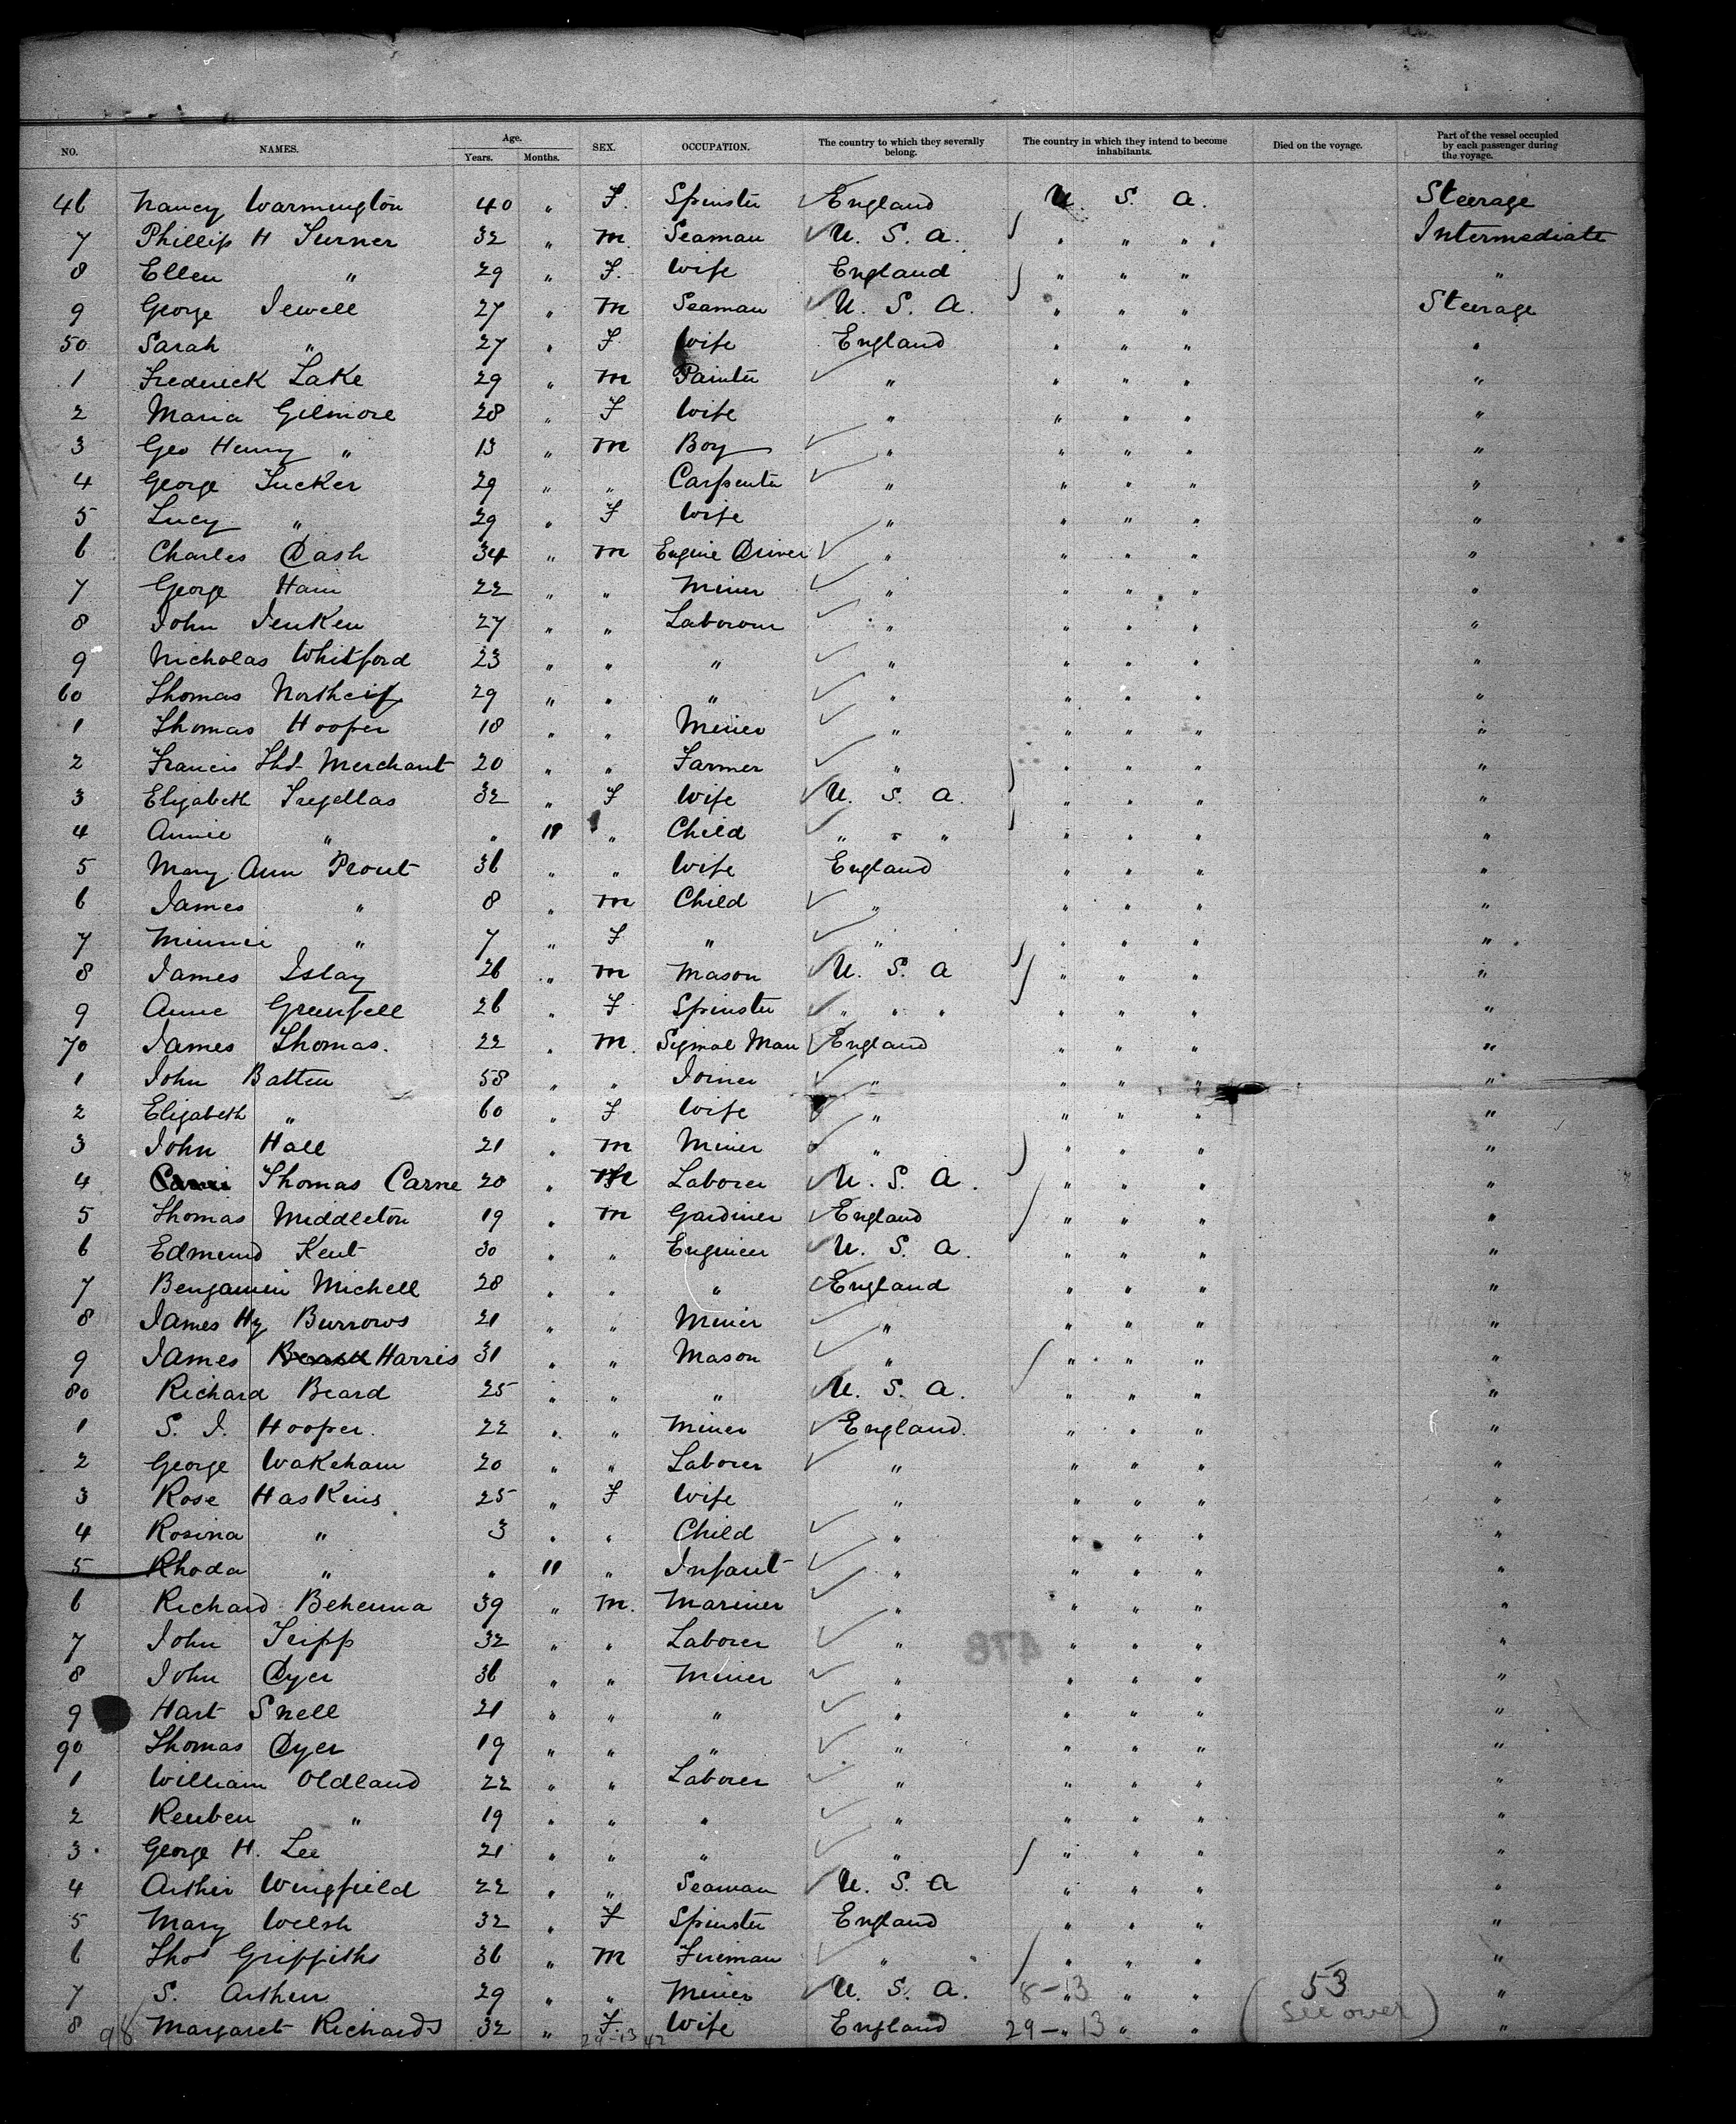 NO. NAMES. Age. Years. Months. SEX. OCCUPATION. The country to which they severally belong. The country in which they intend to become inhabitants. Died on the voyage. Part of the vessel occupied by each passenger during the voyage.
46 Nancy Warmington 40 " F. Spinster England U. S. A. Steerage
7 Phillip H Turner 32 " M Seaman U. S. A. " " " Intermediate
8 Ellen " 29 " F. Wife England " " " "
9 George Jewell 27 " M Seaman U. S. A. " " " Steerage
50 Sarah " 27 " F Wife England " " " "
1 Frederick Lake 29 " M Painter " " " " "
2 Maria Gilmore 28 " F Wife " " " " "
3 Geo Henry " 13 " M Boy " " " " "
4 George Tucker 29 " " Carpenter " " " " "
5 Lucy " 29 " F Wife " " " " "
6 Charles Dash 34 " M Engine Driver " " " " "
7 George Ham 22 " " Miner " " " " "
8 John Jenken 27 " " Laborour " " " " "
9 Nicholas Whitford 23 " " " " " " " "
60 Thomas 29 " " " " " " " "
1 Thomas Hooper 18 " " Miner " " " " "
2 Francis Thos Merchant 20 " " Farmer " " " " "
3 Elizabeth Tregellas 32 " F Wife U. S. A. " " " "
4 Annie " " 11 " Child " " " " " " "
5 Mary Ann Prout 36 " " Wife England " " " "
6 James " 8 " M Child " " " " "
7 Minnie " 7 " F " " " " " "
8 James Islay 26 " M Mason U. S. A " " " "
9 Anne Grenfell 26 " F Spinster " " " " " " "
70 James Thomas. 22 " M. Signal Man England " " " "
1 John Batten 58 " " Joiner " " " " "
2 Elizabeth " 60 " F Wife " " " " "
3 John Hall 21 " M Miner " " " " "
4 Thomas Carne 20 " M Laborer U. S. A. " " " "
5 Thomas Middleton 19 " M Gardiner England " " " "
6 Edmund Kent 30 " " Engineer U. S. A. " " " "
7 Benjamin Michell 28 " " " England " " " "
8 James Hy Burrows 21 " " Miner " " " " "
9 James Harris 31 " " Mason " " " " "
80 Richard Beard 25 " " " U. S. A. " " " "
1 S. J. Hooper. 22 " " Miner England. " " " "
2 George Wakeham 20 " " Laborer " " " " "
3 Rose Haskins 25 " F Wife " " " " "
4 Rosina " 3 " " Child " " " " "
5 Rhoda " " 11 " Infant " " " " "
6 Richard Behenna 39 " M. Mariner " " " " "
7 John Tripp 32 " " Laborer " " " " "
8 John Dyer 36 " " Miner " " " " "
9 Hart Snell 21 " " " " " " " "
90 Thomas Dyer 19 " " " " " " " "
1 William Oldland 22 " " Laborer " " " " "
2 Reuben " 19 " " " " " " " "
3 George H. Lee 21 " " " " " " " "
4 Arthur Wingfield 22 " " Seaman U. S. A " " " "
5 Mary Welsh 32 " F Spinster England " " " "
6 Thos Griffiths 36 " M Fireman " " " " "
7 S. Arthur 29 " " Miner U. S. A. 8-13 " " " 53 "
8 98 Margaret Richards 32 " F. Wife England 29-13 " " " (see over) "
29-13 42
478